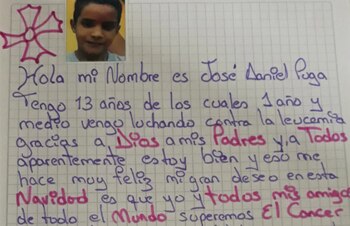 Hola mi Nombre es José Daniel Puga
Tengo 13 años de los cuales 1 año y
medio vengo luchando contra la leucemia
gracias a Dios a mis Padres y a Todos
aparentemente estoy bien y eso me
hace muy feliz mi gran deseo en esta
Navidad es que yo y todos mis amigo
de todo el Mundo superemos El Cancer